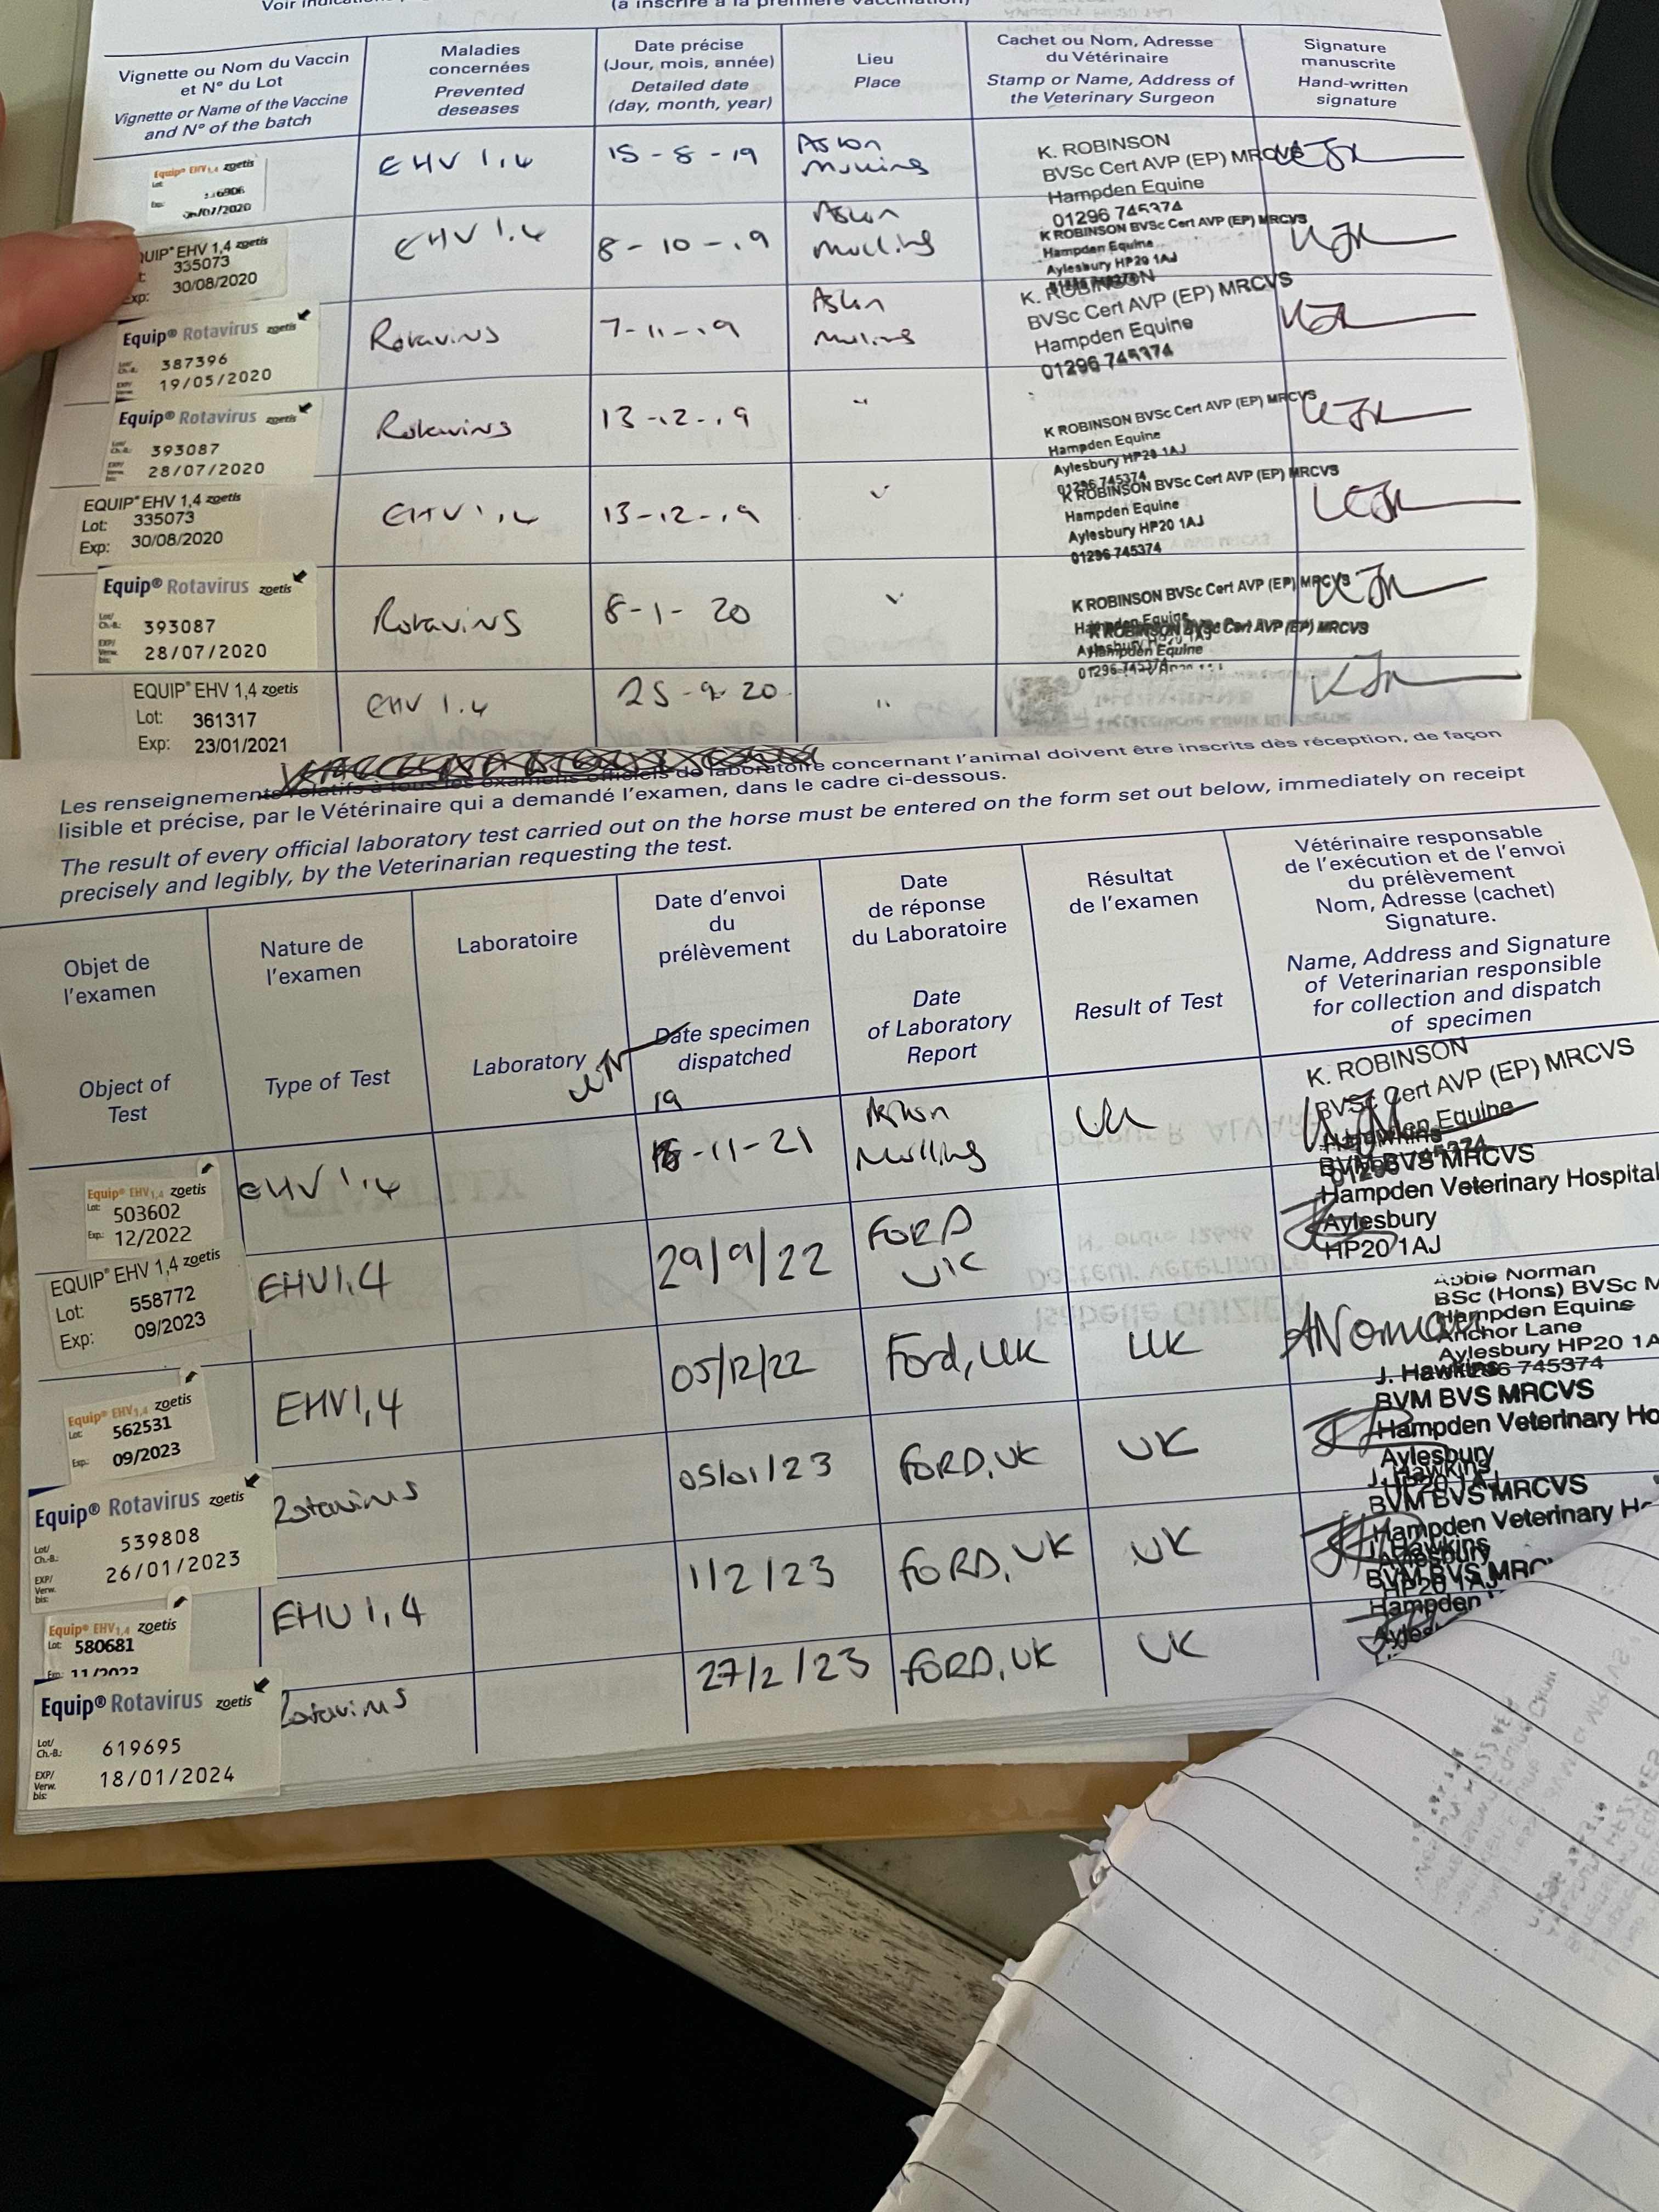 (à inscrire à la première vaccination)
Vignette ou Nom du Vaccin
et N° du Lot
Vignette or Name of the Vaccine
and N° of the batch
Maladies
concernées
Prevented
deseases
Date précise
(Jour, mois, année)
Detailed date
(day, month, year)
Lieu
Place
Cachet ou Nom, Adresse
du Vétérinaire
Stamp or Name, Address of
the Veterinary Surgeon
Signature
manuscrite
Hand-written
signature
Equip® EHV 1,4 zoetis
EHV 1,4
15-8-19
Aston
Mullins
K. ROBINSON
BVSc Cert AVP (EP) MRCVS
Hampden Equine
01296 745374
EHV 1,4 zoetis
335073
30/08/2020
EHV 1.4
8-10-19
Aston
Mullins
K ROBINSON BVSc Cert AVP (EP) MRCVS
Hampden Equine
Aylesbury HP20 1AJ
Equip® Rotavirus zoetis
387396
19/05/2020
Rotavirus
7-11-19
Aston
Mullins
K. ROBINSON
BVSc Cert AVP (EP) MRCVS
Hampden Equine
01296 745374
Equip® Rotavirus zoetis
393087
28/07/2020
Rotavirus
13-12-19
"
K ROBINSON BVSc Cert AVP (EP) MRCVS
Hampden Equine
Aylesbury HP20 1AJ
01296 745374
EQUIP® EHV 1,4 zoetis
Lot: 335073
Exp: 30/08/2020
EHV 1,4
13-12-19
K ROBINSON BVSc Cert AVP (EP) MRCVS
Hampden Equine
Aylesbury HP20 1AJ
01296 745374
Equip® Rotavirus zoetis
Lot/
Ch.-B.: 393087
EXP/
Verw.
bis: 28/07/2020
Rotavirus
8-1-20
K ROBINSON BVSc Cert AVP (EP) MRCVS
K ROBINSON BVSc Cert AVP (EP) MRCVS
Hampden Equine
EQUIP® EHV 1,4 zoetis
Lot: 361317
Exp: 23/01/2021
EHV 1.4
25-9-20
"
Les renseignements relatifs à tous les examens officiels de laboratoire concernant l'animal doivent être inscrits dès réception, de façon
lisible et précise, par le Vétérinaire qui a demandé l'examen, dans le cadre ci-dessous.
The result of every official laboratory test carried out on the horse must be entered on the form set out below, immediately on receipt
precisely and legibly, by the Veterinarian requesting the test.
Objet de
l'examen
Object of
Test
Nature de
l'examen
Type of Test
Laboratoire
Laboratory
Date d'envoi
du
prélèvement
Date specimen
dispatched
Date
de réponse
du Laboratoire
Date
of Laboratory
Report
Résultat
de l'examen
Result of Test
Vétérinaire responsable
de l'exécution et de l'envoi
du prélèvement
Nom, Adresse (cachet)
Signature.
Name, Address and Signature
of Veterinarian responsible
for collection and dispatch
of specimen
Equip® EHV 1,4 zoetis
Lot: 503602
Exp.: 12/2022
EHV 1,4
19
-11-21
Aston
Mullins
UK
K. ROBINSON
BVSc Cert AVP (EP) MRCVS
Hampden Equine
EQUIP® EHV 1,4 zoetis
Lot: 558772
Exp: 09/2023
EHV1,4
29/9/22
FORD
UK
J. Hawkins
BVM BVS MRCVS
Hampden Veterinary Hospital
Aylesbury
HP20 1AJ
Equip® EHV 1,4 zoetis
Lot: 562531
Exp.: 09/2023
EHV1,4
05/12/22
Ford, UK
UK
ANorman
Abbie Norman
BSc (Hons) BVSc M
Hampden Equine
Anchor Lane
Aylesbury HP20 1A
01296 745374
Equip® Rotavirus zoetis
Lot/
Ch.-B.: 539808
EXP/
Verw.
bis: 26/01/2023
Rotavirus
05/01/23
FORD, UK
UK
J. Hawkins
BVM BVS MRCVS
Hampden Veterinary Ho
Aylesbury
HP20 1AJ
Equip® EHV 1,4 zoetis
Lot: 580681
Exp.: 11/2023
EHV 1,4
1/2/23
FORD, UK
UK
J. Hawkins
BVM BVS MRCVS
Hampden Veterinary H
Aylesbury
HP20 1AJ
Equip® Rotavirus zoetis
Lot/
Ch.-B.: 619695
EXP/
Verw.
bis: 18/01/2024
Rotavirus
27/2/23
FORD, UK
UK
J. Hawkins
BVM BVS MRC
Hampden